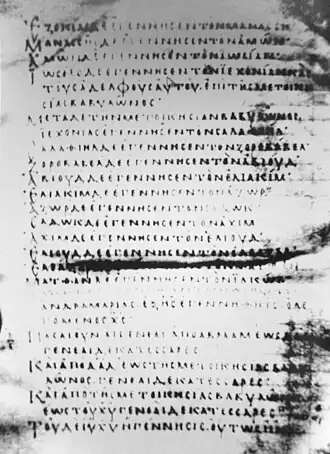 ΕΖΕΚΙΑC ΔΕ ΕΓΕΝΝΗCΕΝ ΤΟΝ ΜΑΝΑCCΗ
ΜΑΝΑCCΗC ΔΕ ΕΓΕΝΝΗCΕΝ ΤΟΝ ΑΜΩC
ΑΜΩC ΔΕ ΕΓΕΝΝΗCΕΝ ΤΟΝ ΙΩCΙΑΝ
ΙΩCΙΑC ΔΕ ΕΓΕΝΝΗCΕΝ ΤΟΝ ΙΕΧΟΝΙΑΝ ΚΑΙ
ΤΟΥC ΑΔΕΛΦΟΥC ΑΥΤΟΥ ΕΠΙ ΤΗC ΜΕΤΟΙΚΕ
CΙΑC ΒΑΒΥΛΩΝΟC
ΜΕΤΑ ΔΕ ΤΗΝ ΜΕΤΟΙΚΕCΙΑΝ ΒΑΒΥΛΩΝΟC
ΙΕΧΟΝΙΑC ΔΕ ΕΓΕΝΝΗCΕΝ ΤΟΝ CΑΛΑΘΙΗΛ
CΑΛΑΘΙΗΛ ΔΕ ΕΓΕΝΝΗCΕΝ ΤΟΝ ΖΟΡΟΒΑΒΕΛ
ΖΟΡΟΒΑΒΕΛ ΔΕ ΕΓΕΝΝΗCΕΝ ΤΟΝ ΑΒΙΟΥΔ
ΑΒΙΟΥΔ ΔΕ ΕΓΕΝΝΗCΕΝ ΤΟΝ ΕΛΙΑΚΙΜ
ΕΛΙΑΚΙΜ ΔΕ ΕΓΕΝΝΗCΕΝ ΤΟΝ ΑΖΩΡ
ΑΖΩΡ ΔΕ ΕΓΕΝΝΗCΕΝ ΤΟΝ CΑΔΩΚ
CΑΔΩΚ ΔΕ ΕΓΕΝΝΗCΕΝ ΤΟΝ ΑΧΙΜ
ΑΧΙΜ ΔΕ ΕΓΕΝΝΗCΕΝ ΤΟΝ ΕΛΙΟΥΔ
ΕΛΙΟΥΔ ΔΕ ΕΓΕΝΝΗCΕΝ ΤΟΝ
ΜΑΤΘΑΝ ΔΕ ΕΓΕΝΝΗCΕΝ ΤΟΝ ΙΑΚΩΒ
ΑΝΔΡΑ ΜΑΡΙΑC ΕΞ ΗC ΕΓΕΝΝΗΘΗ ΙC Ο ΛΕ
ΓΟΜΕΝΟC ΧC
ΠΑCΑΙ ΟΥΝ ΑΙ ΓΕΝΕΑΙ ΑΠΟ ΑΒΡΑΑΜ ΕΩC
ΓΕΝΕΑΙ ΔΕΚΑΤΕCCΑΡΕC
ΚΑΙ ΑΠΟ ΔΑΔ ΕΩC ΤΗC ΜΕΤΟΙΚΕCΙΑC ΒΑΒΥ
ΛΩΝΟC ΓΕΝΕΑΙ ΔΕΚΑΤΕCCΑΡΕC
ΚΑΙ ΑΠΟ ΤΗC ΜΕΤΟΙΚΕCΙΑC ΒΑΒΥΛΩΝΟC
ΕΩC ΤΟΥ ΧΥ ΓΕΝΕΑΙ ΔΕΚΑΤΕCCΑΡΕC
ΤΟΥ ΔΕ ΙΥ ΧΥ Η ΓΕΝΝΗCΙC ΟΥΤΩC ΗΝ